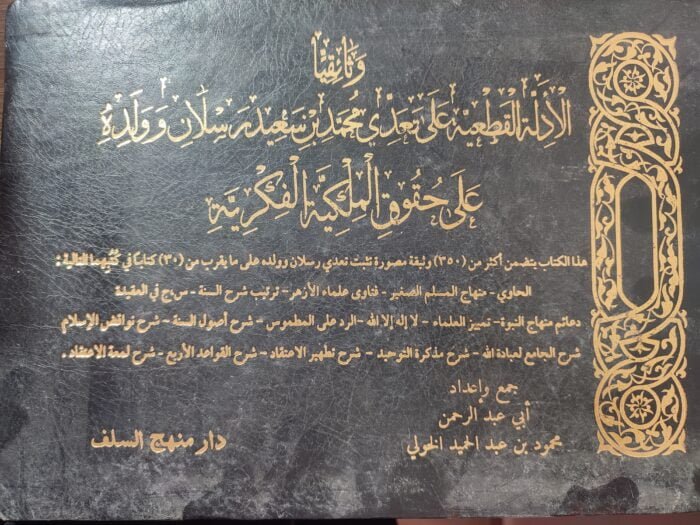 وثائقيًا
الأدلة القطعية على تعدي محمد بن سعيد رسلان وولده
على حقوق الملكية الفكرية
هذا الكتاب يتضمن أكثر من (٣٥٠) وثيقة مصورة تثبت تعدي رسلان وولده على ما يقرب من (٣٠) كتابًا في كتبهما التالية :
الحاوي - منهاج المسلم الصغير - فتاوى علماء الأزهر - ترتيب شرح السنة - س.ج في العقيدة
دعائم منهاج النبوة - تمييز العلماء - لا إله إلا الله - الرد على المطموس - شرح أصول السنة - شرح نواقض الإسلام
شرح الجامع لعبادة الله - شرح مذكرة التوحيد - شرح تطهير الاعتقاد - شرح القواعد الأربع - شرح لمعة الاعتقاد .
جمع وإعداد
أبي عبد الرحمن
محمود بن عبد الحميد الخولي
دار منهج السلف